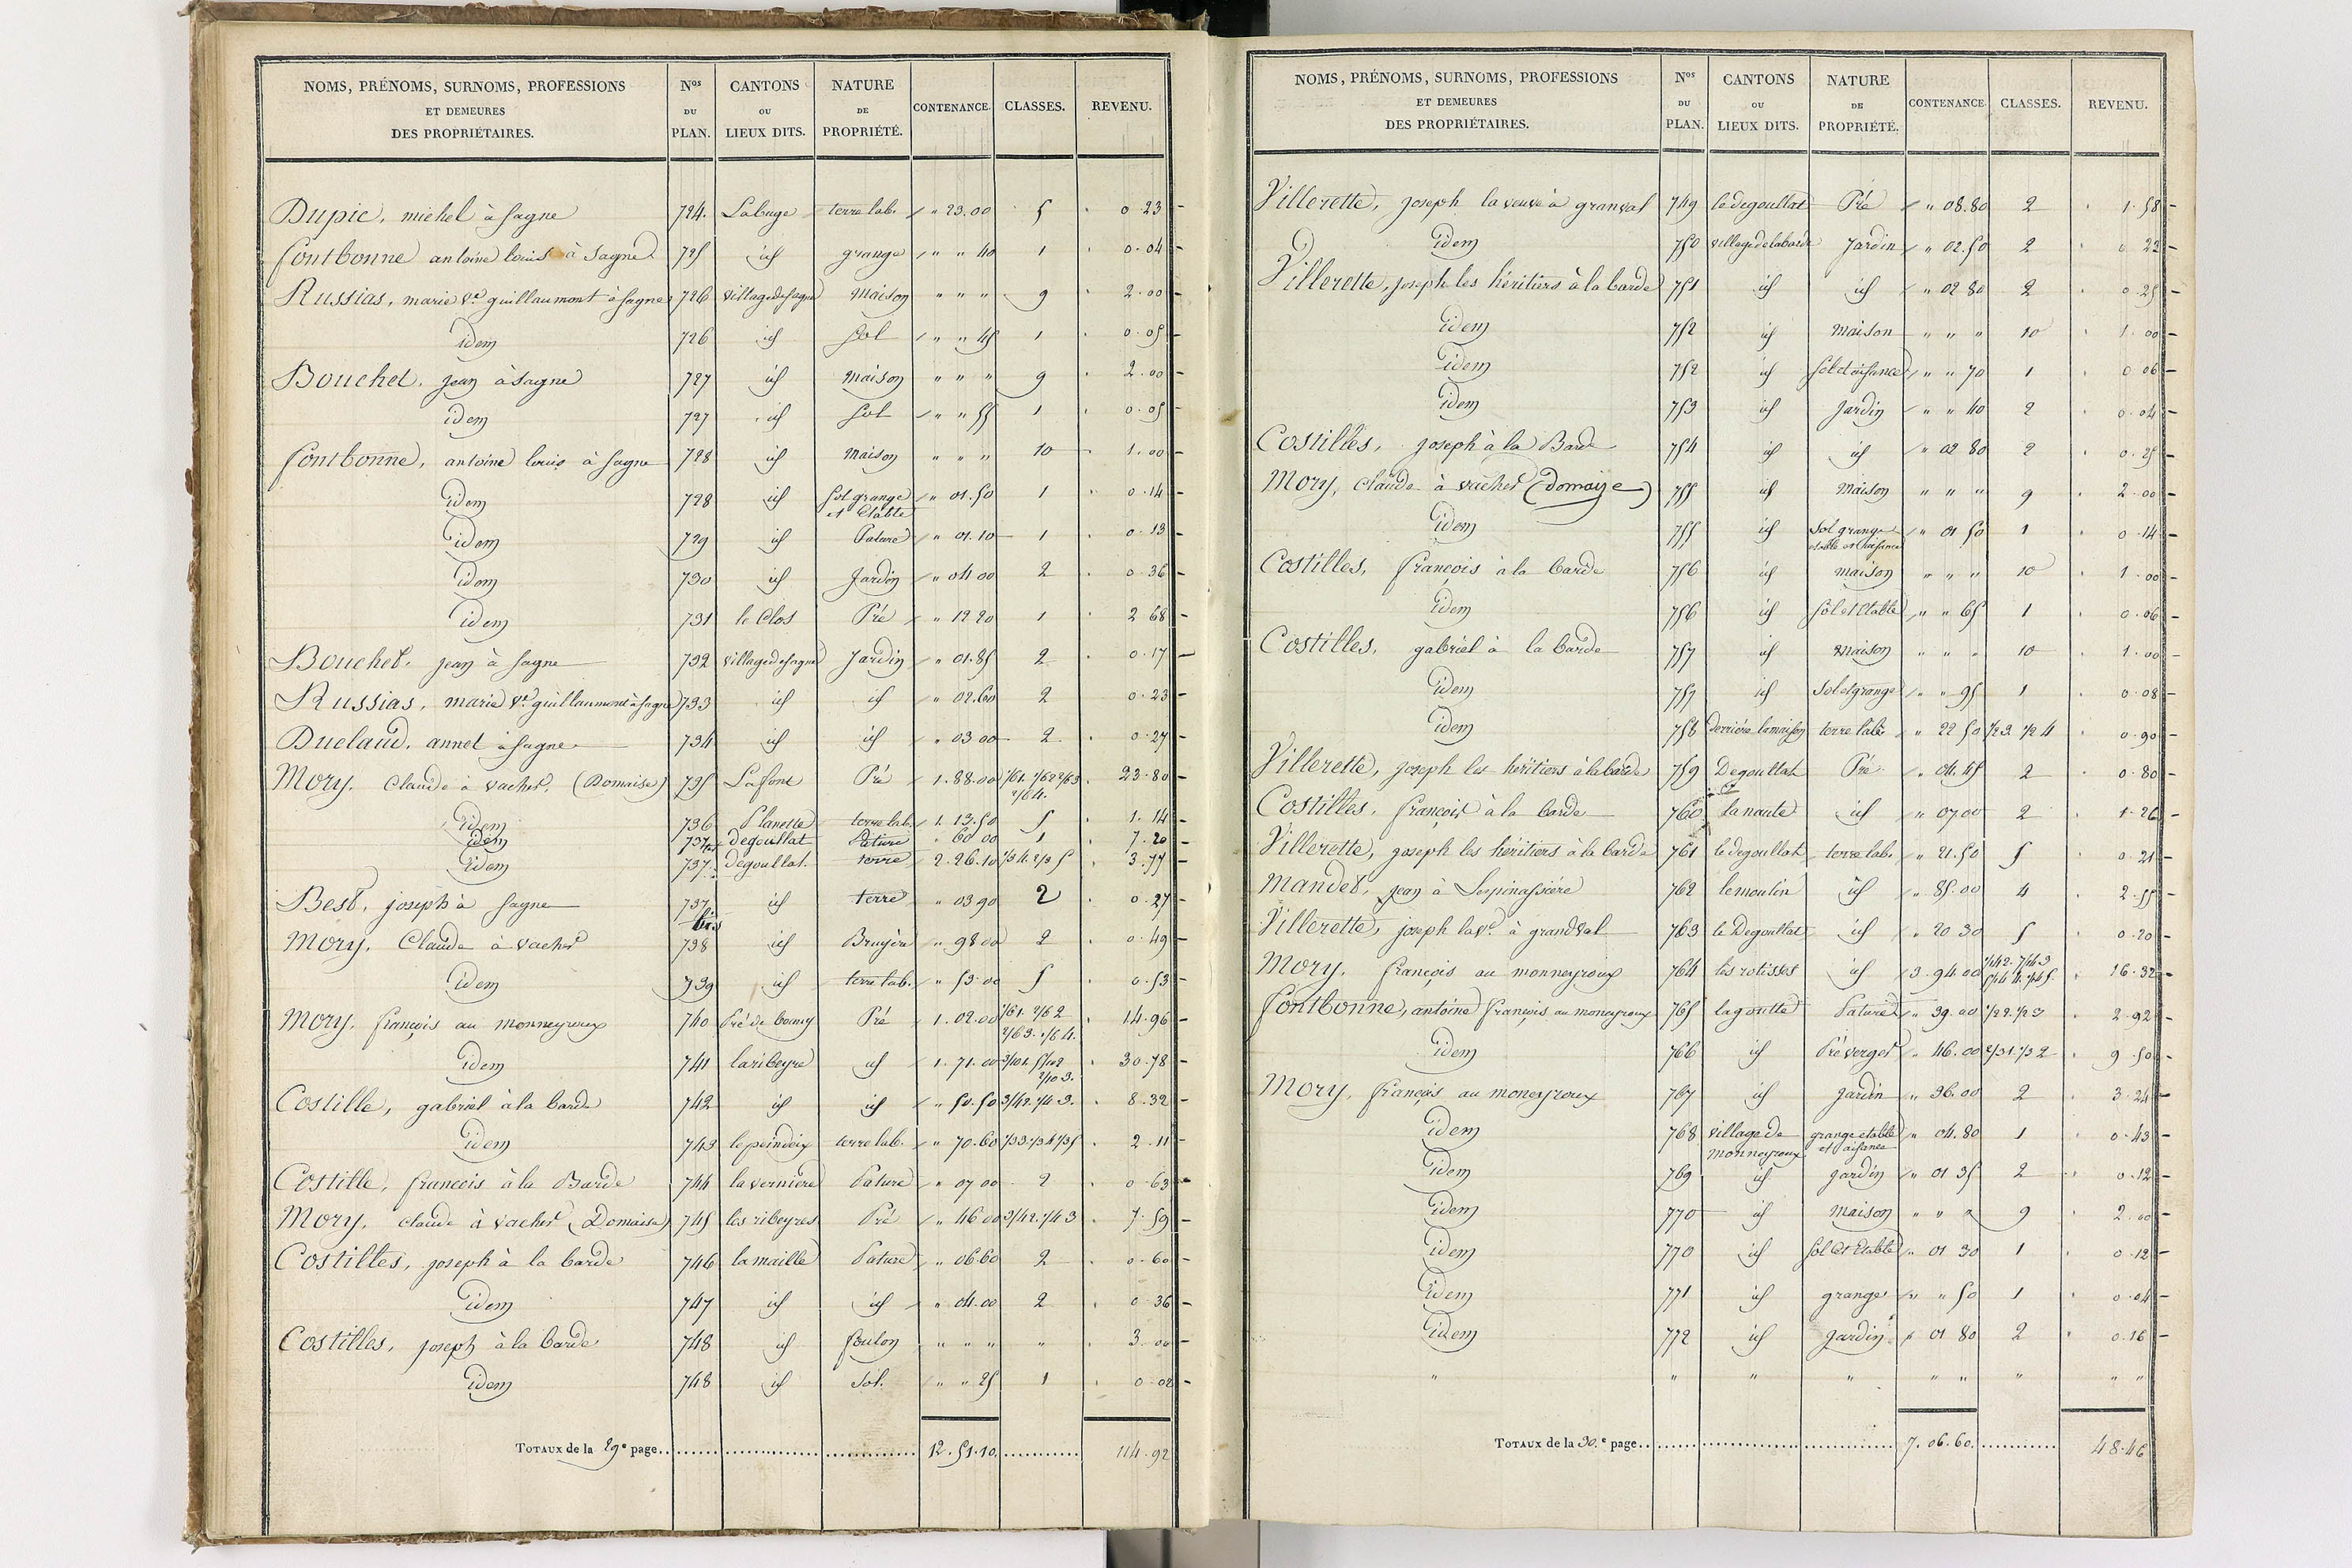 NOMS, PRÉNOMS, SURNOMS, PROFESSIONS ET DEMEURES DES PROPRIÉTAIRES. Nos DU PLAN. CANTONS OU LIEUX DITS. NATURE DE PROPRIÉTÉ. CONTENANCE. CLASSES. REVENU.
Dupic, michel à Sagne 724. Labuge terre lab. " 23.00 5 0 23
fontbonne antoine louis à Sagne 725 id grange " " 40 1 0.04
Russias, marie ve guillaumont à sagne 726 village de sagne Maison " " " 9 2.00
idem 726 id Sol " " 45 1 0.05
Bouchet, jean à Sagne 727 id Maison " " " 9 2.00
idem 727 id Sol " " 55 1 0.05
fontbonne, antoine louis à sagne 728 id Maison " " " 10 1.00
Idem 728 id Sol grange et Etable " 01.50 1 0.14
Idem 729 id Pature " 01.10 1 0.13
Idem 730 id Jardin " 04 00 2 0.36
idem 731 le Clos Pré " 12 20 1 2 68
Bouchet, jean à sagne 732 village de sagne Jardin " 01.85 2 0.17
Russias, marie ve guillaumont à sagne 733 id id " 02.60 2 0.23
Duclaud, annet à Sagne 734 id id " 03 00 2 0.27
Mory, Claude à vacher, (Domaise) 735 Lafont Pré 1.88.00 1/61. 1/62 2/63 2/64. 23.80
Idem 736 Planette terre lab. 1.13.50 5 1.14
Idem 737 degoullat Pature " 60 00 1 7.20
Idem 737. degoullat terre 2.26.10 1/34. 2/35 3.77
Best, joseph à sagne 737 bis id terre " 03 90 2 0.27
Mory, Claude à vacher 738 id Bruyère " 98 00 2 0.49
Idem 739 id terre lab. " 53.00 5 0.53
Mory, françois au monneyroux 740 Pré de Pré 1.02.00 1/61. 2/62 2/63. 1/64. 14.96
Idem 741 laribeyre id 1.71.00 3/101. 5/102 2/103. 30.78
Costille, gabriel à la barde 742 id id " 50.50 3/42. 1/43. 8.32
Idem 743 lepeindeix terre lab. " 70.60 1/33. 1/34 1/35 2.11
Costille, francois à la Barde 744 la vernière Pature " 07 00 2 0.63
Mory, claude à vacher (Domaise) 745 les ribeyres Pré " 46 00 3/42. 1/43 7.59
Costilles, joseph à la barde 746 lamaille Pature " 06.60 2 0.60
Idem 747 id id " 04.00 2 0 36
Costilles, joseph à la barde 748 id foulon " " " " 3.00
idem 748 id Sol. " " 25 1 0.02
TOTAUX de la 29e page. 12.51.10. 114.92
NOMS, PRÉNOMS, SURNOMS, PROFESSIONS ET DEMEURES DES PROPRIÉTAIRES. Nos DU PLAN. CANTONS OU LIEUX DITS. NATURE DE PROPRIÉTÉ. CONTENANCE. CLASSES. REVENU.
Villerette, joseph la veuve à granval 749 le degoullat Pré " 08.80 2 1.58
Idem 750 village de labarde Jardin " 02.50 2 0 22
Villerette, joseph les héritiers à la barde 751 id id " 02 80 2 0.25
Idem 752 id Maison " " " 10 1.00
Idem 752 id Sol et aisance " " 70 1 0 06
Idem 753 id Jardin " " 40 2 0.04
Costilles, joseph à la Barde 754 id id " 02 80 2 0.25
Mory, Claude à vacher (Domaize) 755 id Maison " " " 9 2.00
Idem 755 id Sol grange etable et aisance " 01 50 1 0.14
Costilles, françois à la barde 756 id maison " " " 10 1.00
Idem 756 id Sol et Etable " " 65 1 0.06
Costilles, gabriel à la barde 757 id Maison " " " 10 1.00
Idem 757 id Sol et grange " " 95 1 0.08
Idem 758 derrière lamaison terre lab. " 22 50 1/23. 1/24 0.90
Villerette, joseph les héritiers à la barde 759 Degoullat et Pré " 04.45 2 0.80
Costilles, françois à la barde 760 lanaute id " 07 00 2 1.26
Villerette, joseph les héritiers à la barde 761 le degoullat terre lab. " 21.50 5 0.21
Mandet, jean à Lespinassière 762 lemoulin id " 85.00 4 2.55
Villerette, joseph lave à grandval 763 le Degoullat id " 20 30 5 0.20
Mory, françois au monneyroux 764 les rotisses id 3.94 00 16.32
Fontbonne, antoine françois au moneyroux 765 lagoutte Pature " 39.00 1/22. 1/23 2.92
Idem 766 id Pré verger " 46.00 2/31. 1/32 9 50
Mory, françois au moneyroux 767 id Jardin " 36.00 2 3.24
Idem 768 village de monneyroux grange etable et aisance " 04.80 1 0.43
Idem 769 id Jardin " 01 35 2 0.12
Idem 770 id Maison " " " 9 2.00
Idem 770 id Sol et Etable " 01 30 1 0.12
Idem 771 id grange " " 50 1 0.04
Idem 772 id Jardin " 01 80 2 0.16
" " " " " " " " "
TOTAUX de la 30.e page. 7.06.60. 48.46